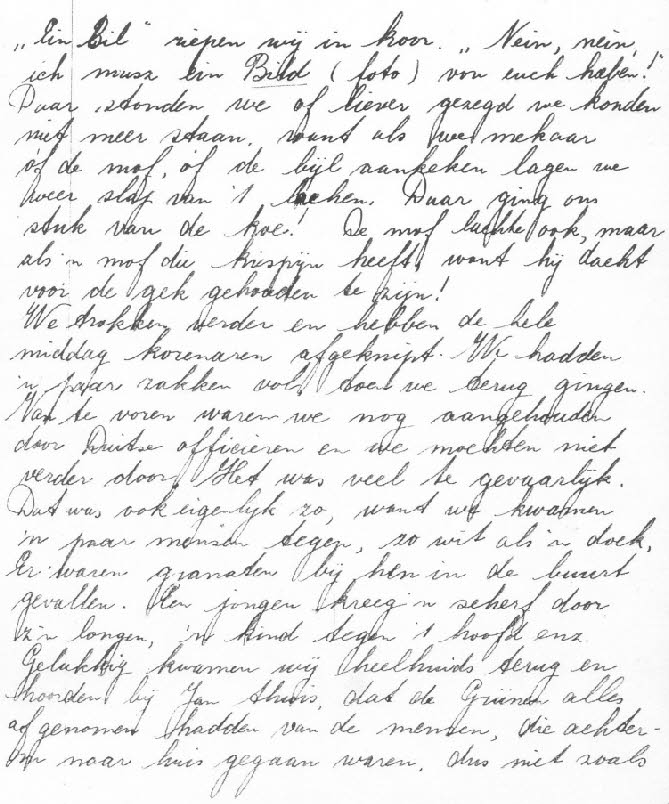 „Ein Bil" riepen wij in koor. „Nein, nein,
ich musz ein Bild (foto) von euch haben!"
Daar stonden we of liever gezegd we konden
niet meer staan, want als we mekaar
óf de mof, óf de bijl aankeken lagen we
weer slap van 't lachen. Daar ging ons
stuk van de koe! De mof lachte ook, maar
als 'n mof die kiespijn heeft, want hij dacht
voor de gek gehouden te zijn!
We trokken verder en hebben de hele
middag korenaren afgeknipt. We hadden
'n paar zakken vol, toen we terug gingen.
Van te voren waren we nog aangehouden
door Duitse officieren en we mochten niet
verder door. Het was veel te gevaarlijk.
Dat was ook eigenlijk zo, want we kwamen
'n paar mensen tegen, zo wit als 'n doek.
Er waren granaten bij hen in de buurt
gevallen. Een jongen kreeg 'n scherf door
z'n longen, 'n kind tegen 't hoofd enz.
Gelukkig kwamen wij heelhuids terug en
hoorden bij Jan thuis, dat de Grünen alles
afgenomen hadden van de mensen, die achter-
om naar huis gegaan waren, dus niet zoals